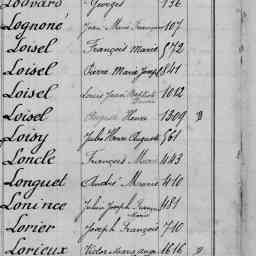 Georges 136
Lognoné Jean Marie François 107
Loisel François Marie 572
Loisel Pierre Marie Joseph 841
Loisel Louis Jean Baptiste 1012
Loisel Auguste Henri 1309 D
Loisy Jules Henri Auguste 561
Loncle François Marie 443
Longuet André Marie 410
Lonince Julien Joseph François Marie 481
Lorier Joseph François 710
Lorieux Victor Marie Ange 1616 D